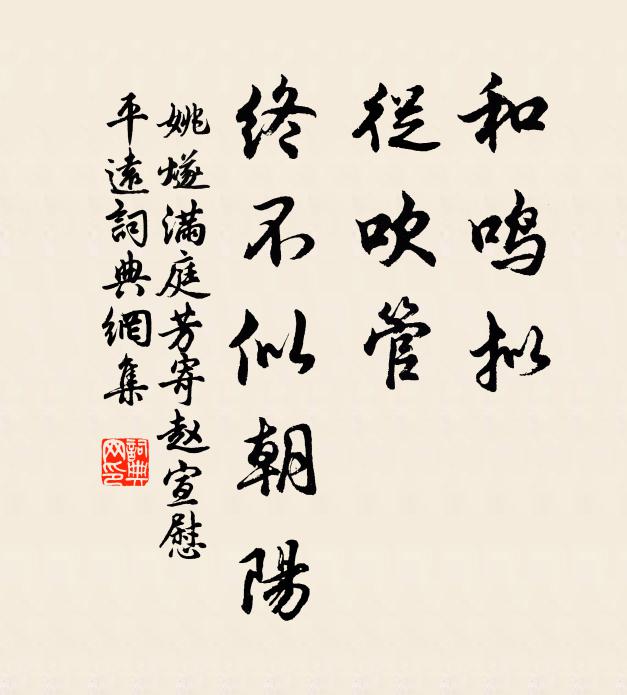 和鸣拟
從吹管
终不似朝陽
姚燧满庭芳寄赵宣慰
平遠詞典網集
詞典
网印